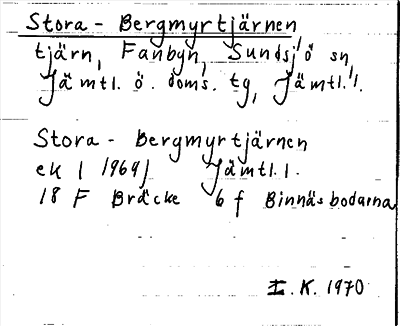 Stora - Bergmyrtjärnen,
tjärn, Fanbyn, Sundsjö sn,
Jämtl. ö. doms. tg, Jämtl. l.
Stora - Bergmyrtjärnen
ek (1969) Jämtl. l.
18 F Bräcke 6 f Binnäsbodarna
I. K. 1970